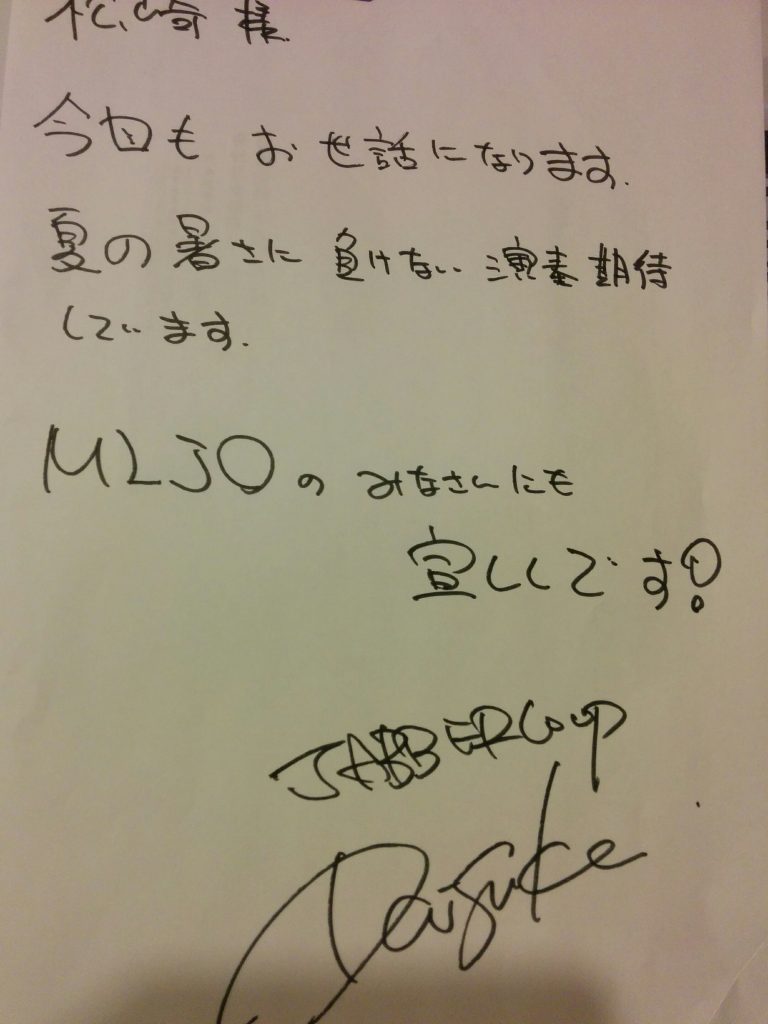 松崎 様
今回も お世話になります.
夏の暑さに 負けない 演奏期待
しています.
MLJOの みなさんにも
宜しくです!
JABBERLOUP
Daisuke